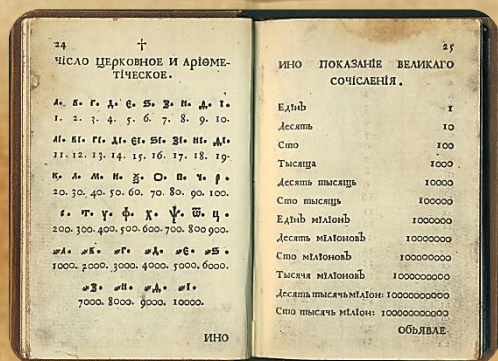 24 †
ЧІСЛО ЦЕРКОВНОЕ И АРІѲМЕ-
ТІЧЕСКОЕ.
А. В. Г. Д. Є. Ѕ. З. И. Ѳ. І.
1. 2. 3. 4. 5. 6. 7. 8. 9. 10.
АІ. ВІ. ГІ. ДІ. ЄІ. ЅІ. ЗІ. ИІ. ѲІ.
11. 12. 13. 14. 15. 16. 17. 18. 19.
К. Л. М. Н. Ѯ. О. П. Ч. Р.
20. 30. 40. 50. 60. 70. 80. 90. 100.
С. Т. Ѵ. Ф. Х. Ѱ. Ѿ. Ц.
200. 300. 400. 500. 600. 700. 800 900.
҂А. ҂В. ҂Г. ҂Д. ҂Є. ҂Ѕ.
1000. 2000. 3000. 4000. 5000. 6000.
҂З. ҂И. ҂Ѳ. ҂І.
7000. 8000. 9000. 10000.
ИНО
25
ИНО ПОКАЗАНІЕ ВЕЛИКАГО
СОЧІСЛЕНІЯ.
ЕдінЪ 1
Десять 10
Сто 100
Тысяща 1000
Десять тысящь 10000
Сто тысящь 100000
ЕдінЪ міліонЪ 1000000
Десять міліоновЪ 10000000
Сто міліоновЪ 100000000
Тысячя міліоновЪ 1000000000
Десять тысячь міліон: 10000000000
Сто тысячь міліон: 100000000000
ОБЬЯВЛЕ-